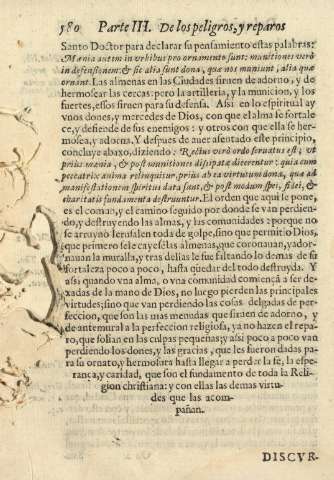 580 Parte III. De los peligros, y reparos
Santo Doctor para declarar su pensamiento estas palabras:
Mœnia autem in vrbibus pro ornamento sunt: munitiones verò
in defensionem: & sic alia sunt dona, quæ nos muniunt, alia quæ
ornant. Las almenas en las Ciudades siruen de adorno, y de
hermosear las cercas: pero la artilleria, y la municion, y los
fuertes, essos siruen para su defensa. Assi en lo espiritual ay
vnos dones, y mercedes de Dios, con que el alma se fortale-
ce, y defiende de sus enemigos: y otros con que ella se her-
mosea, y adorna. Y despues de auer assentado este principio,
concluye abaxo, diziendo: Rectus verò ordo seruatus est, vt
prius mœnia, & post munitiones dissipatæ dicerentur: quia cum
peccatrix anima relinquitur, prius ab ea virtutum dona, quæ ad
manifestationem spiritus data sunt, & post modum spei, fidei, &
charitatis fundamenta destruuntur. El orden que aqui le pone,
es el comun, y el camino seguido por donde se van perdien-
do, y destruyendo las almas, y las comunidades: porque no
se arruynò Ierusalen toda de golpe, sino que permitio Dios,
que primero se le cayessẽ las almenas, que coronauan, y ador-
nauan la muralla, y tras dellas le fue faltando lo demas de su
fortaleza poco a poco, hasta quedar del todo destruyda. Y
assi quando vna alma, o vna comunidad comiença a ser de-
xadas de la mano de Dios, no luego pierden las principales
virtudes; sino que van perdiendo las cosas delgadas de per-
feccion, que son las mas menudas que siruen de adorno, y
de antemural a la perfeccion religiosa, ya no hazen el repa-
ro, que solian en las culpas pequeñas; y assi poco a poco van
perdiendo los dones, y las gracias, que les fueron dadas pa-
ra su ornato, y hermosura hasta llegar a perder la fè, la espe-
rança, y caridad, que son el fundamento de toda la Reli-
gion christiana: y con ellas las demas virtu-
des que las acom-
pañan.
DISCVR-